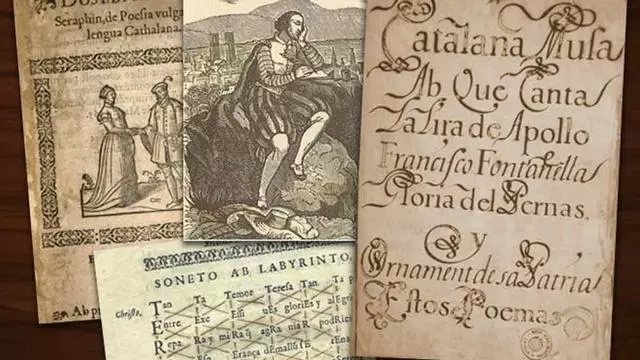 Seraphin, de Poesia vulga
lengua Cathalana.
Ab p
SONETO AB LABYRINTO,
Christo. Tan Ta Temor Teresa Tan Ta p
Entre Exe Essi ues gloriEs y alEgr
Repa Ray mi Ra q̃ agRa uia R podRies
Erança
Catalana Musa
Ab Que Canta
La Lira de Apollo
Francisco Fontanella
Gloria del Pernas,
y
Ornament de sa Patria
Estos Poemas